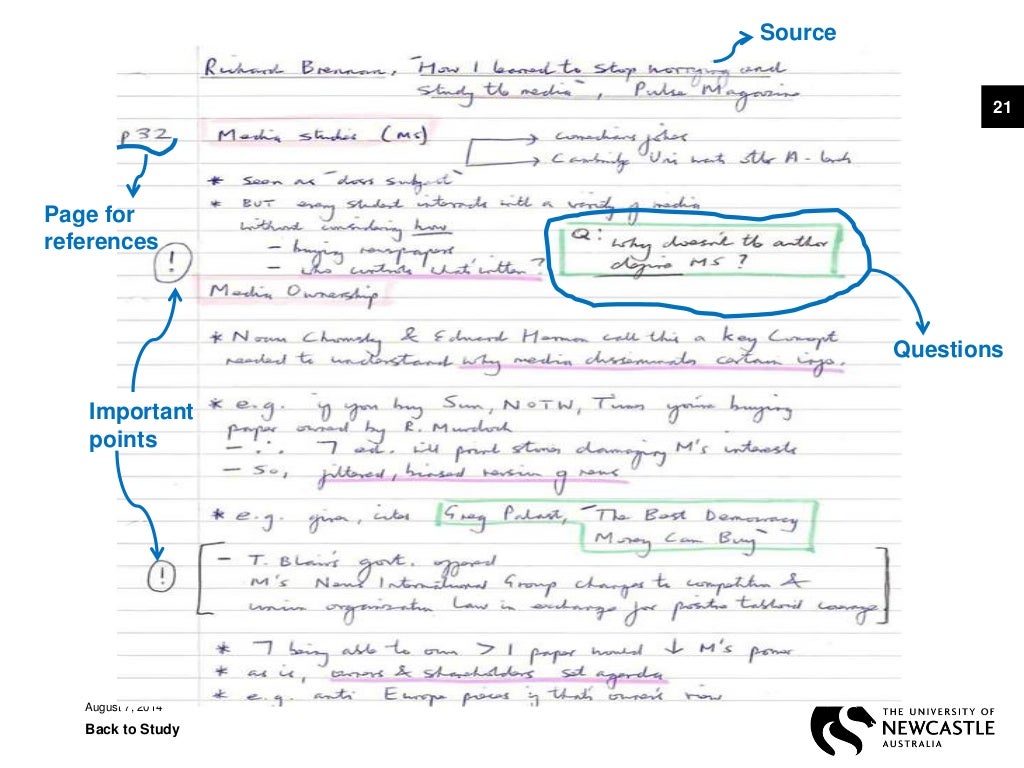 Source
Richard Brennan, "How I learned to stop worrying and
study the media", Pulse Magazine
21
p32
Media Studies (MS)
→ comedians jokes
→ Cambridge Uni wants other A-levels
* Seen as "doss subject"
* BUT every student interacts with a variety of media
without considering how
– buying newspapers
– who controls what's written?
Q: Why doesn't the author
define MS?
Page for
references
!
Media Ownership
Questions
* Noam Chomsky & Edward Herman call this a key concept
needed to understand why media disseminate certain info.
Important
points
* e.g. if you buy Sun, NOTW, Times you're buying
paper owned by R. Murdoch
– ∴ ed. will print stories damaging M's interests
– So, filtered, biased version of news
* e.g. given, cites Greg Palast, "The Best Democracy
Money Can Buy"
!
– T. Blair's govt. offered
M's News International Group changes to competition &
union organisation law in exchange for positive tabloid coverage
* ㄱ being able to own > 1 paper would ↓ M's power
* as is, owners & shareholders set agenda
* e.g. anti Europe pieces if that's owner's view
August 7, 2014
Back to Study
THE UNIVERSITY OF
NEWCASTLE
AUSTRALIA